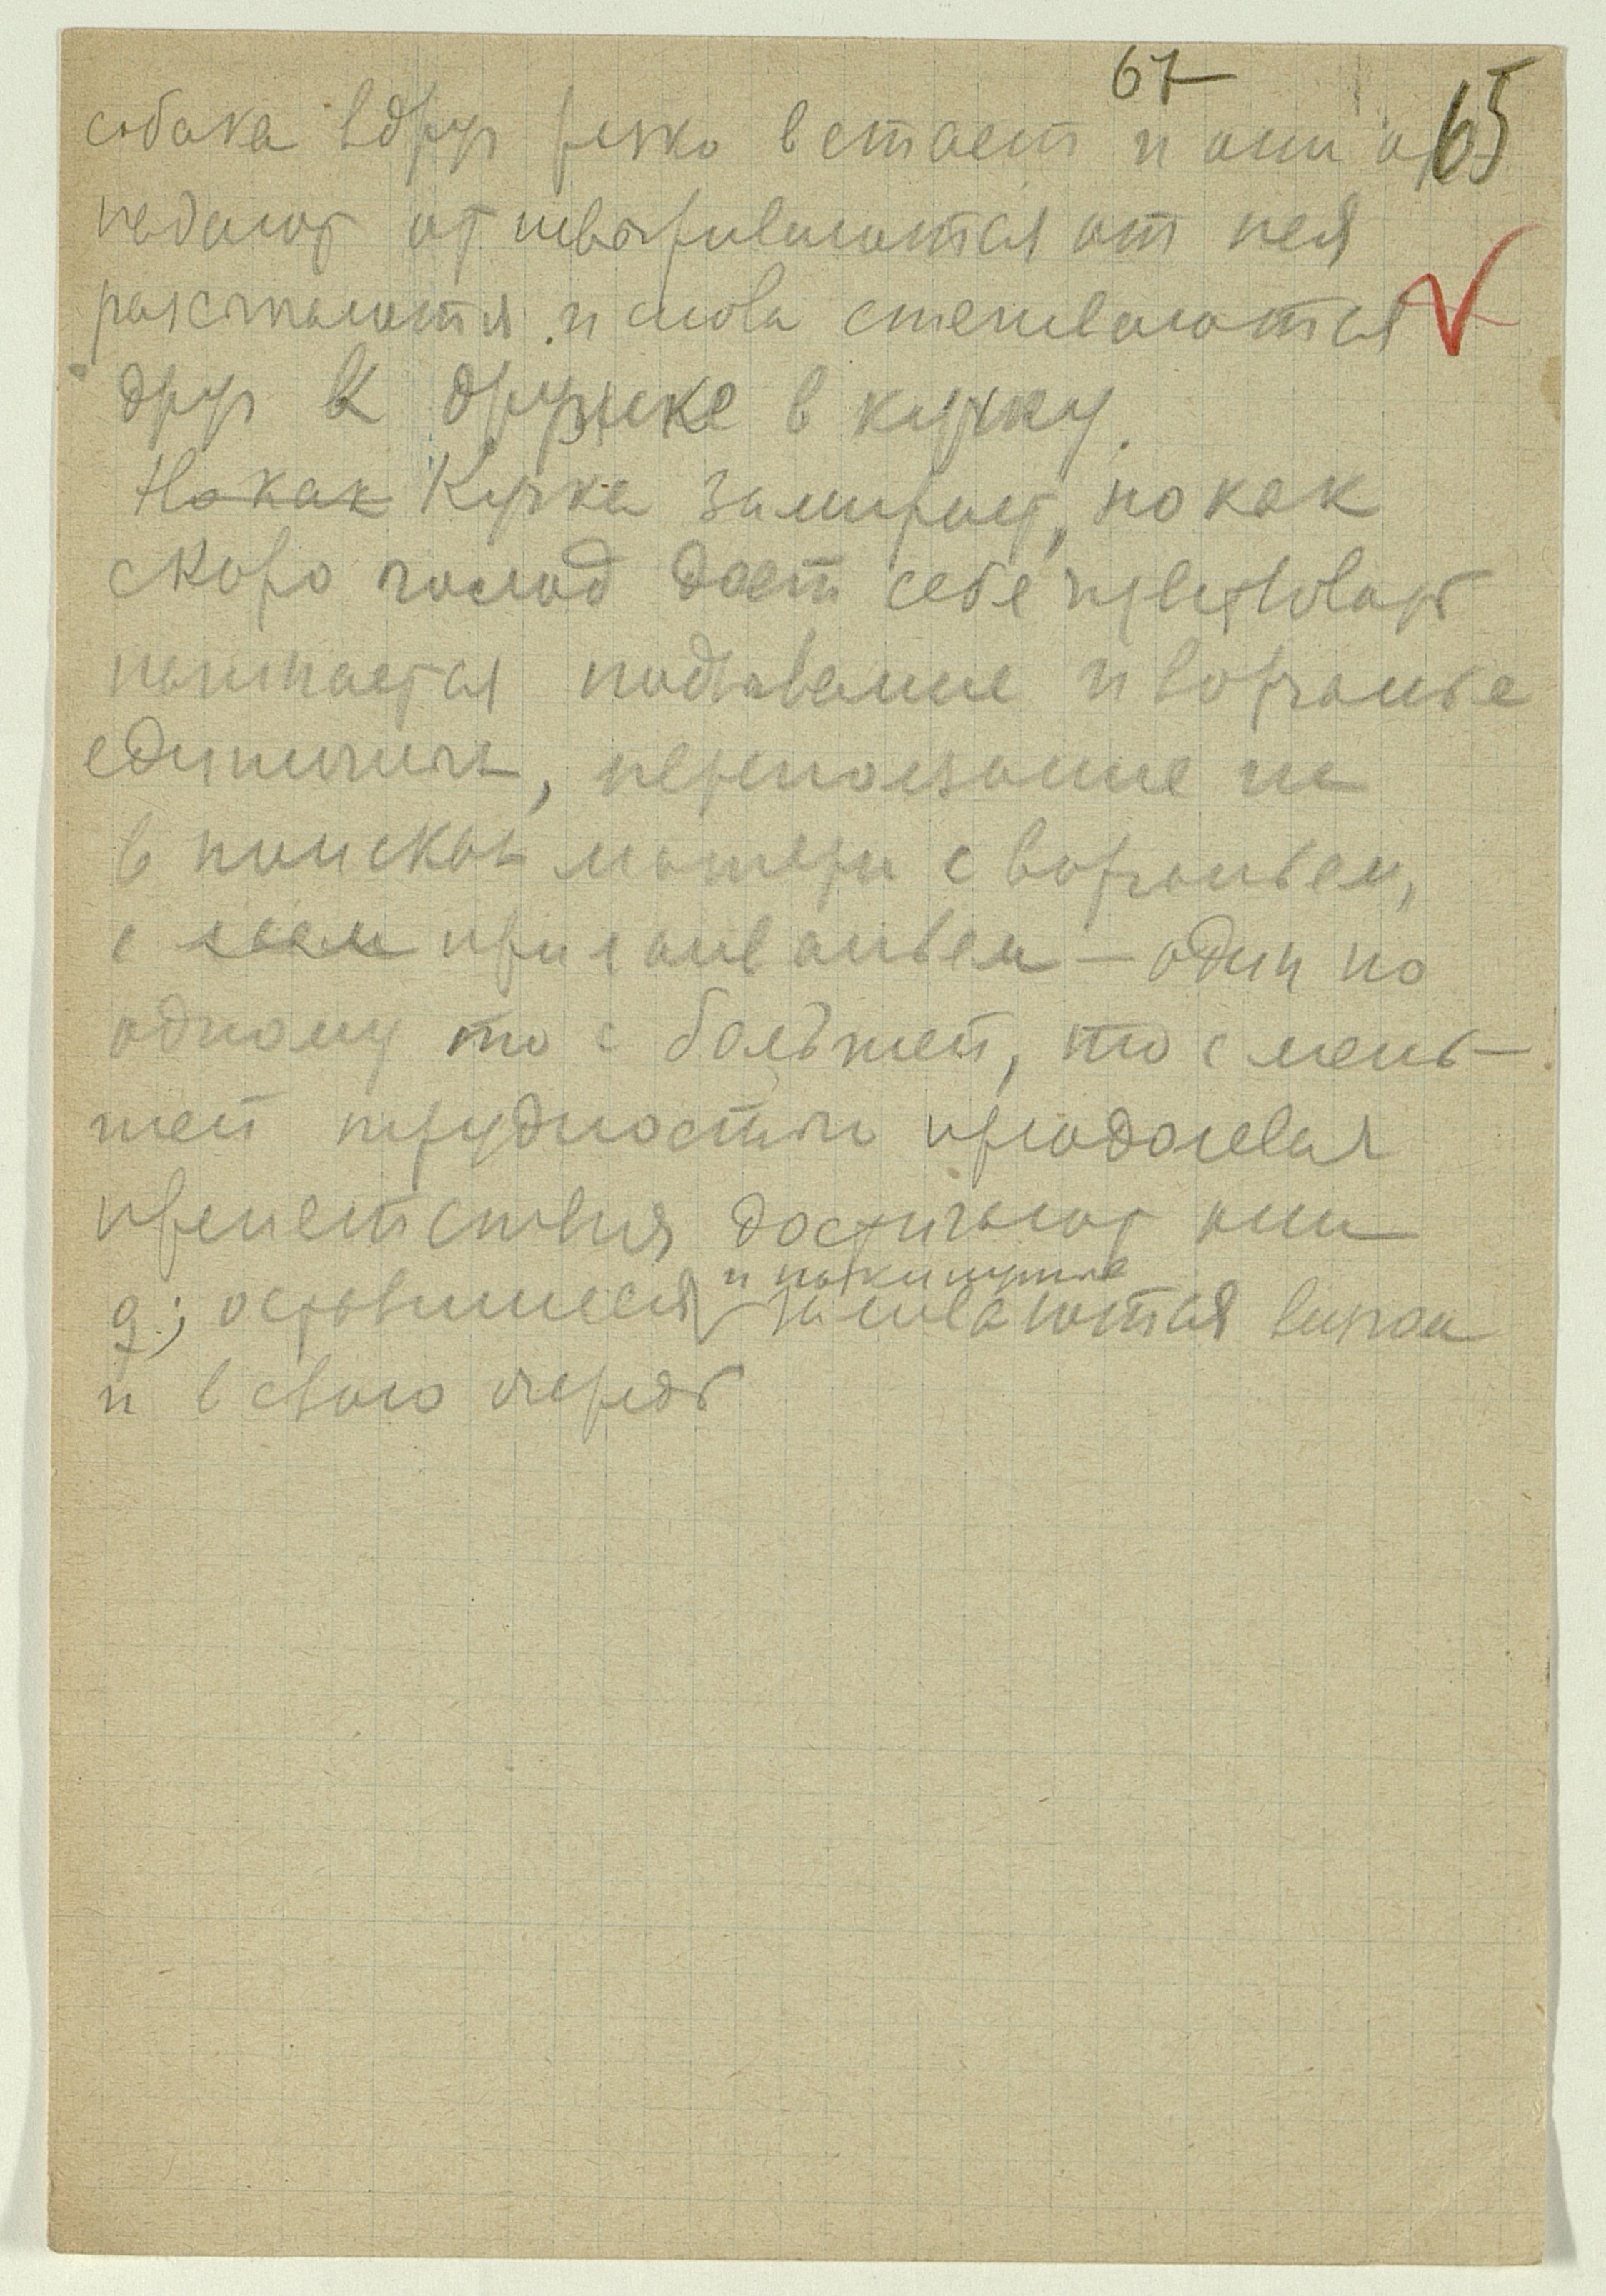 67
65
собака вдруг резко встает и они от
падают отшвыриваются от нея
расстаются и снова стекиваются
друг к дружке в кучку.
Но как Кучка замирает, но как
скоро голод дает себе чувствовать
начинается подывание и ворчанье
единичных, переползание их
в поисках матери с ворчаньем,
с присапываньем — один по
одному то с большей, то с мень-
шей трудностью преодолевая
препятствия достигают они
и покинутые
оставшиеся заливаются воем
и в свою очередь